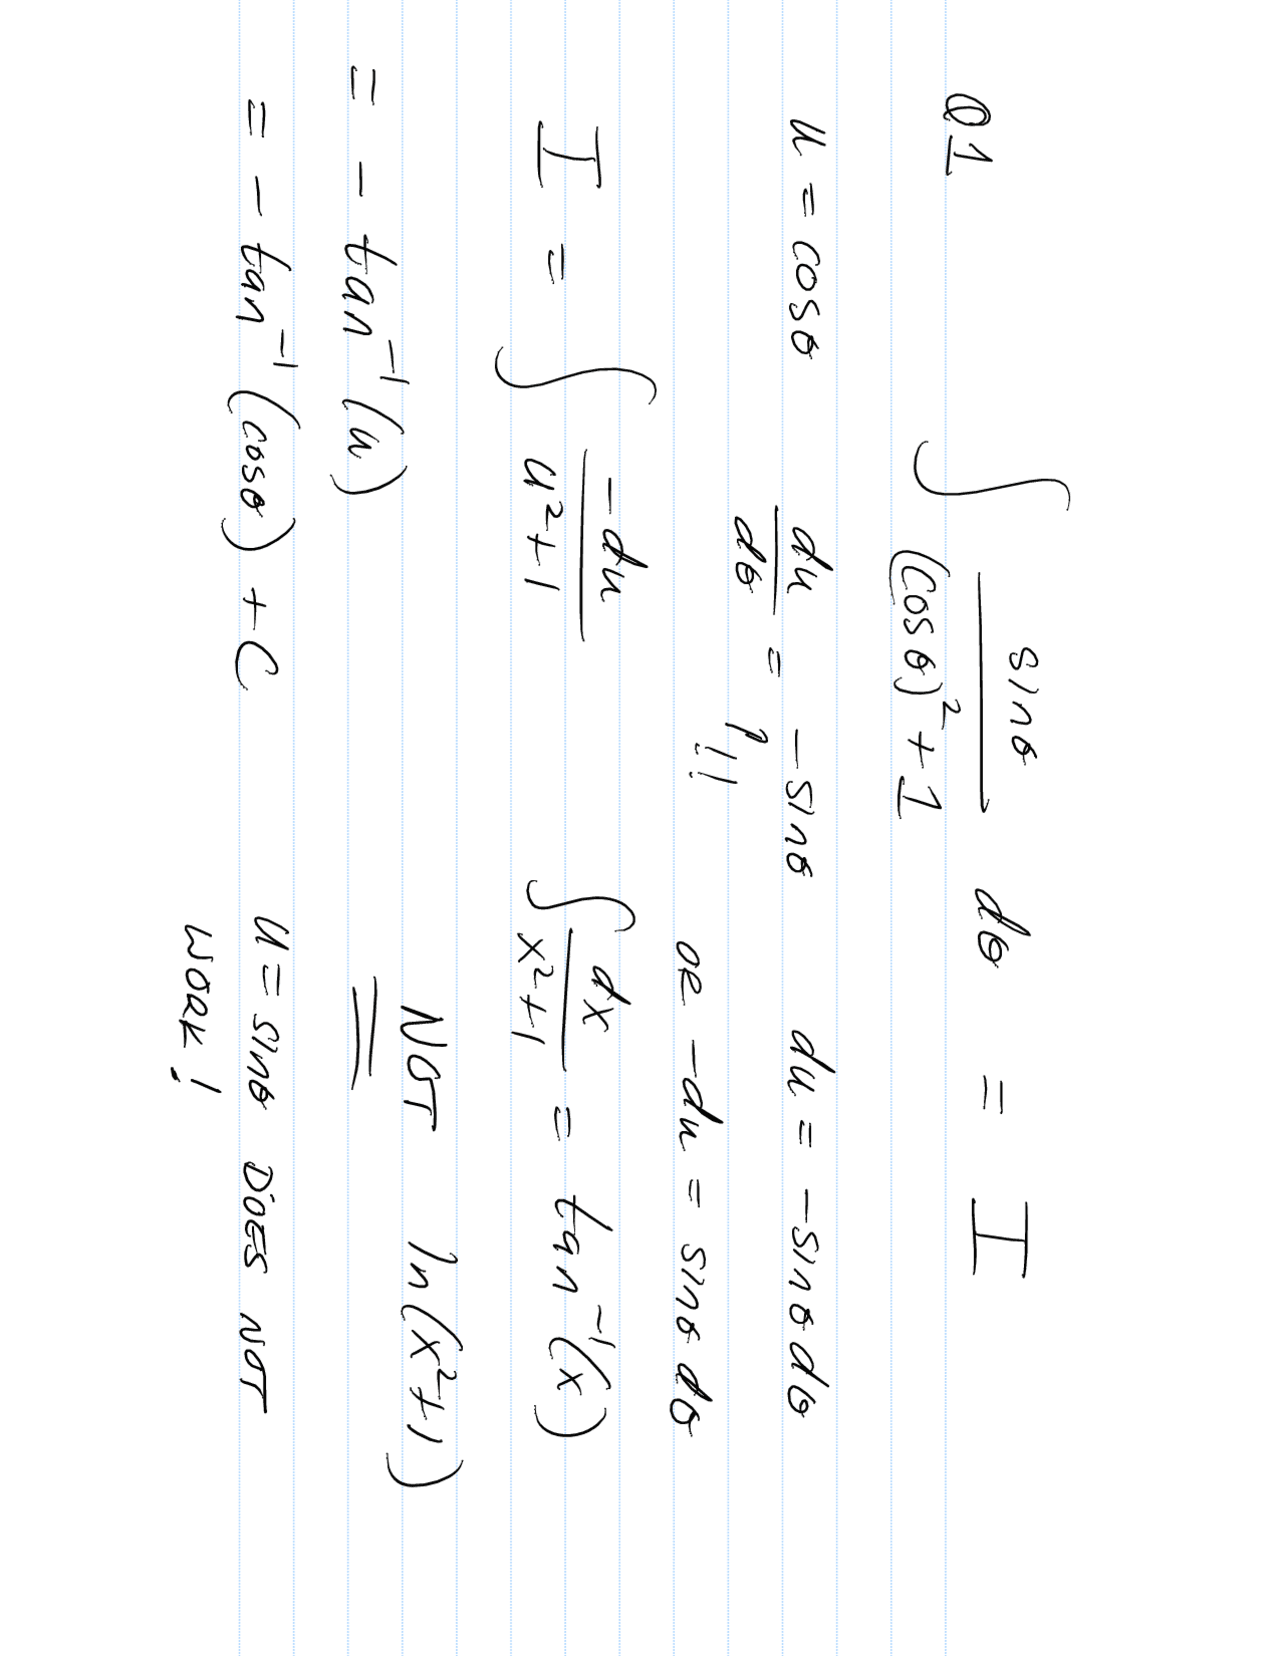 Q1 ∫ sinθ / ((cosθ)² + 1) dθ = I
u = cosθ du/dθ = -sinθ du = -sinθ dθ
!! OR -du = sinθ dθ
I = ∫ -du / (u² + 1) ∫ dx / (x² + 1) = tan⁻¹(x)
= - tan⁻¹(u) NOT ln(x² + 1)
= - tan⁻¹(cosθ) + C u = sinθ DOES NOT
WORK!